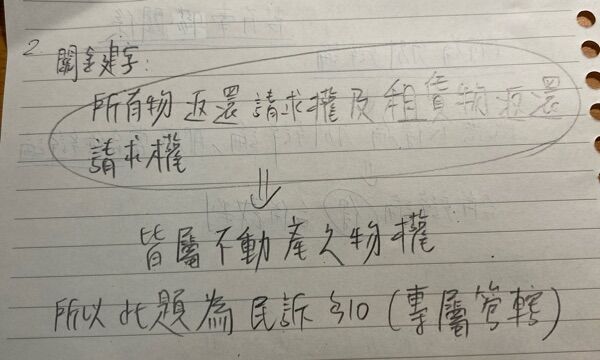 2. 關鍵字:
所有物返還請求權及租賃物返還
請求權
⇓
皆屬不動產之物權
所以此題為民訴§10(專屬管轄)